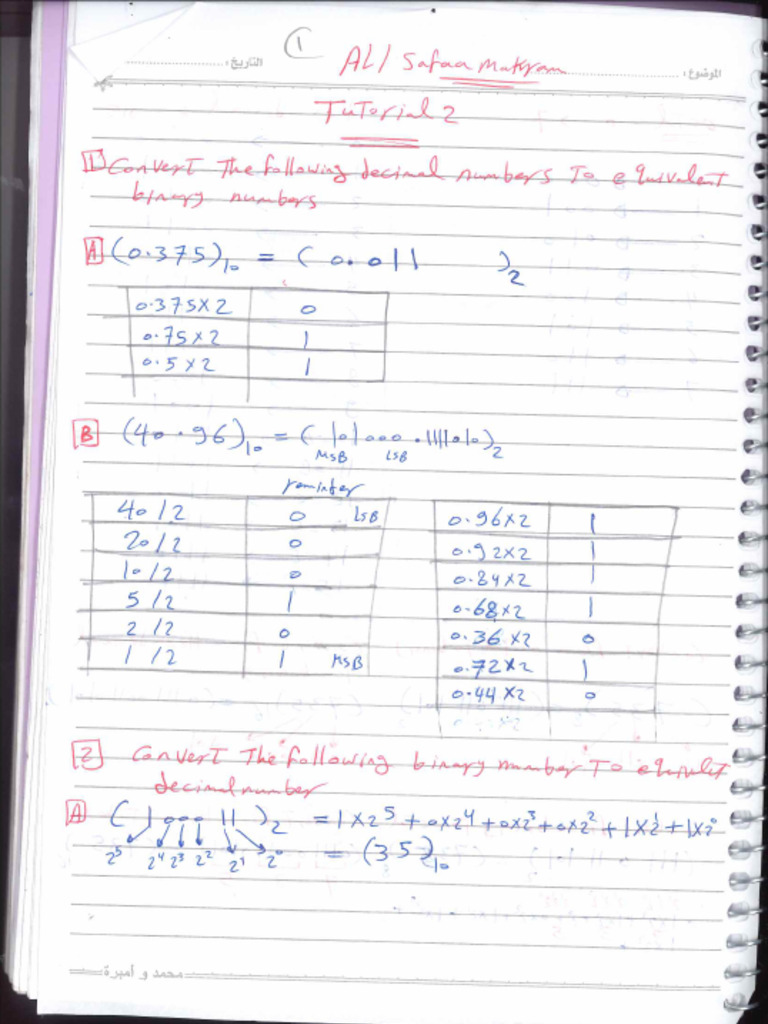 1
الموضوع: التاريخ:
ALI Safaa Makram
Tutorial 2
1 Convert The following decimal numbers To equivalent
binary numbers
A (0.375)10 = ( 0.011 )2
0.375x2 0
0.75x2 1
0.5x2 1
B (40.96)10 = ( 101000.1111010)2
MSB LSB
reminter
40/2 0 LSB
20/2 0
10/2 0
5/2 1
2/2 0
1/2 1 MSB
0.96x2 1
0.92x2 1
0.84x2 1
0.68x2 1
0.36x2 0
0.72x2 1
0.44x2 0
2 Convert The following binary number To equivalet
decimal number
A ( 100011 )2 = 1x2^5 + 0x2^4 + 0x2^3 + 0x2^2 + 1x2^1 + 1x2^0
2^5 2^4 2^3 2^2 2^1 2^0 = (35)10
محمد و أميرة